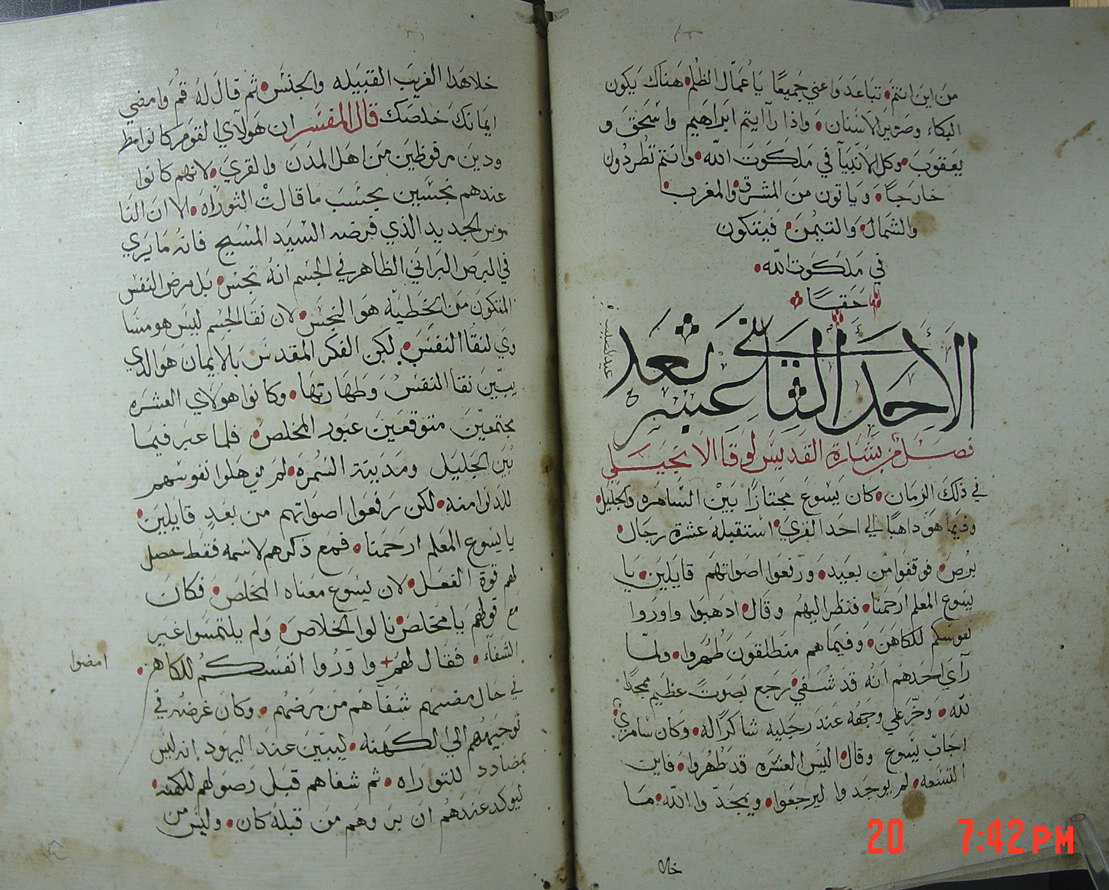 من اين انتم تباعدوا عني جميعًا يا عمّال الظلم هناك يكون
البكاء وصرير الاسنان واذا رأيتم ابراهيم واسحق و
يعقوب وكل الانبيآ في ملكوت الله وانتم تطردون
خارجاً وياتون من المشرق والمغرب
والشمال والتيمن فيتكون
في ملكوت الله
حقاً
الاحد الثاني عشر بعد
فصل من بشارة القديس لوقا الانجيلي
في ذلك الزمان كان يسوع مجتازاً بين السامره والجليل
وفيما هو ذاهباً الي احد القري استقبله عشرة رجال
برص فوقفوا من بعيد ورفعوا اصواتهم قايلين يا
يسوع المعلم ارحمنا فنظر اليهم وقال اذهبوا واوروا
نفوسكم للكاهن وفيما هم منطلقون طهروا ولمّا
رآي احدهم انه قد شفي رجع بصوت عظيم ممجداً
لله وخرّ علي وجهه عند رجليه شاكراً له وكان سامري
اجاب يسوع وقال اليس العشره قد طهروا فاين
التسعه لم يوجدوا ليرجعوا ويمجدوا الله ما
خلا
خلا هذا الغريب القبيله والجنس ثم قال له قم وامضي
ايمانك خلصك قال المفسر ان هولاي القوم كانوا مط
رودين مرفوظين من اهل المدن والقري لانهم كانوا
عندهم نجسين بحسب ما قالت التوراه الا ان النا
موس الجديد الذي فرضه السيد المسيح فانه ما يري
في البرص البراني الظاهر في الجسم انه نجس بل مرض النفس
المتكون من الخطيه هو النجس لان نقا الجسم ليس هو مسا
وي لنقاا النفس لكن الفكر المقدس بالايمان هو الذي
يبيّن نقا النفس وطهارتها وكانوا هولاي العشره
مجتمعين متوقعين عبور المخلص فلما عبر فيما
بين الجليل ومدينة السمره لم يوهلوا نفوسهم
للدنو منه لكن رفعوا اصواتهم من بعد قايلين
يا يسوع المعلم ارحمنا فمع ذكرهم لاسمه فقط حصل
لهم قوة الفعل لان يسوع معناه المخلص فكان
مع قولهم يا مخلص نالوا الخلاص ولم يلتمسوا غير
الشفاء فقال لهم + واوروا انفسكم للكاهن
امضوا
في حال مضيهم شفاهم من مرضهم وكان غرضه في
توجيههم الي الكهنه ليبين عند اليهود انه ليس
بمضادد للتوراه ثم شفاهم قبل وصولهم للكهنه
ليوكد عندهم ان بروهم من قبله كان وليس من
20 7:42 PM